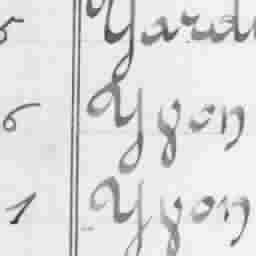 5 Yard
6 Ygon
1 Ygon